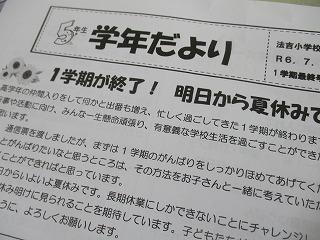 5年生
学年だより
法吉小学校
R6.7.
1学期最終号
1学期が終了! 明日から夏休みで
高学年の仲間入りをして何かと出番も増え、忙しく過ごしてきた1学期が終わります
行事や活動に向け、みんな一生懸命頑張り、有意義な学校生活を過ごすことができ
思います。
通信票を渡しましたが、まずは1学期のがんばりをしっかりほめてあげてくだ
とがんばりたいなと思うところは、その方法をお子さんと一緒に考えていただ
ことができればと思っています。
日からいよいよ夏休みです。長期休業にしかできないことにチャレンジし
休み明けに見られることを期待しています。子どもた
うに、よろしくお願いします。